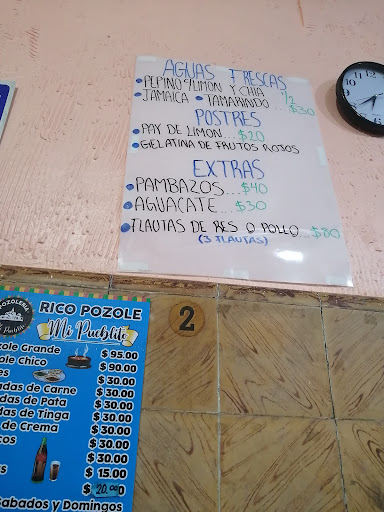 AGUAS FRESCAS
• PEPINO C/LIMON Y CHIA
• JAMAICA • TAMARINDO... 1/2 $30
POSTRES
• PAY DE LIMON... $20
• GELATINA DE FRUTOS ROJOS
EXTRAS
• PAMBAZOS... $40
• AGUACATE... $30
• FLAUTAS DE RES O POLLO... $80
(3 FLAUTAS)
2
RICO POZOLE
Mi Pueblito
Grande $ 95.00
Chico $ 90.00
$ 30.00
de Carne $ 30.00
de Pata $ 30.00
de Tinga $ 30.00
de Crema $ 30.00
$ 30.00
$ 15.00
$ 20.00
Sabados y Domingos